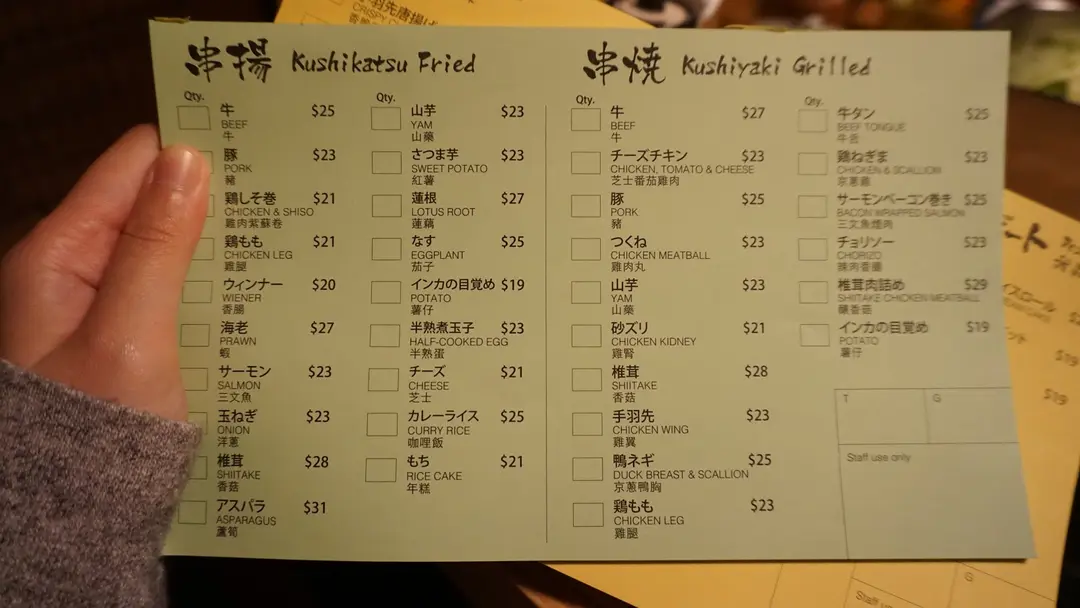 串揚 Kushikatsu Fried
Qty.
牛 $25
BEEF
牛
豚 $23
PORK
豬
鶏しそ巻 $21
CHICKEN & SHISO
雞肉紫蘇卷
鶏もも $21
CHICKEN LEG
雞腿
ウィンナー $20
WIENER
香腸
海老 $27
PRAWN
蝦
サーモン $23
SALMON
三文魚
玉ねぎ $23
ONION
洋蔥
椎茸 $28
SHIITAKE
香菇
アスパラ $31
ASPARAGUS
蘆筍
Qty.
山芋 $23
YAM
山藥
さつま芋 $23
SWEET POTATO
紅薯
蓮根 $27
LOTUS ROOT
蓮藕
なす $25
EGGPLANT
茄子
インカの目覚め $19
POTATO
薯仔
半熟煮玉子 $23
HALF-COOKED EGG
半熟蛋
チーズ $21
CHEESE
芝士
カレーライス $25
CURRY RICE
咖哩飯
もち $21
RICE CAKE
年糕
串焼 Kushiyaki Grilled
Qty.
牛 $27
BEEF
牛
チーズチキン $23
CHICKEN, TOMATO & CHEESE
芝士番茄雞肉
豚 $25
PORK
豬
つくね $23
CHICKEN MEATBALL
雞肉丸
山芋 $23
YAM
山藥
砂ズリ $21
CHICKEN KIDNEY
雞腎
椎茸 $28
SHIITAKE
香菇
手羽先 $23
CHICKEN WING
雞翼
鴨ネギ $25
DUCK BREAST & SCALLION
京蔥鴨胸
鶏もも $23
CHICKEN LEG
雞腿
Qty.
牛タン $25
BEEF TONGUE
牛舌
鶏ねぎま $23
CHICKEN & SCALLION
京蔥雞
サーモンベーコン巻き $25
BACON WRAPPED SALMON
三文魚煙肉
チョリソー $23
CHORIZO
辣肉香腸
椎茸肉詰め $29
SHIITAKE CHICKEN MEATBALL
釀香菇
インカの目覚め $19
POTATO
薯仔
T G
Staff use only
羽先唐揚げ
CRISPY
イスロール
$19
$19
G
Staff